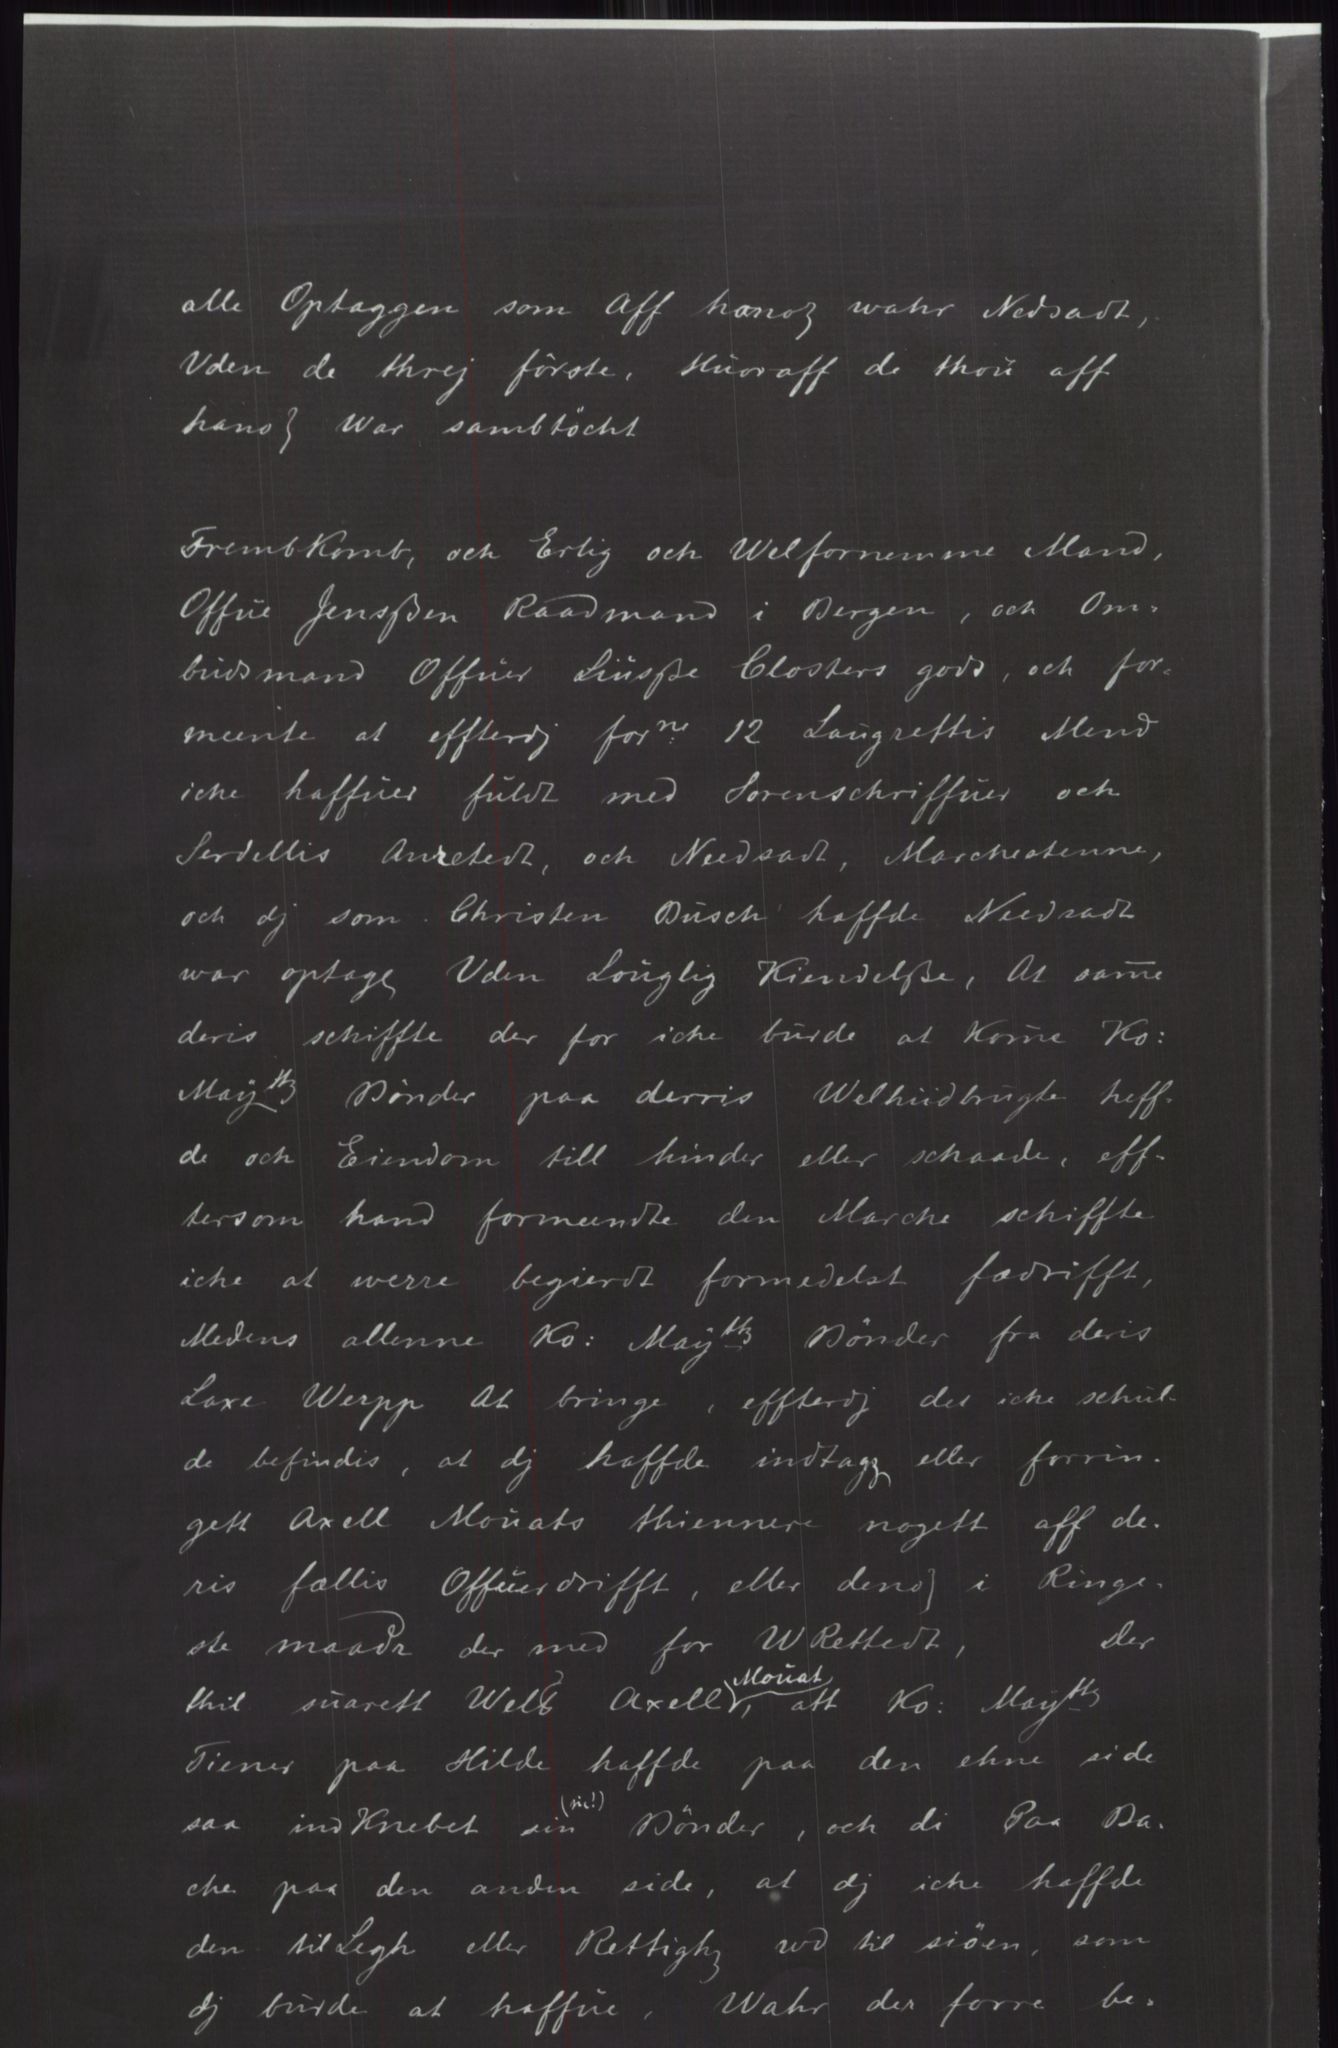 alle Optaggen som Aff hanoz wahr Nedsadt,
Vden de threj förste, Huoraff de thou aff
hanoz War sambtöcht
FrembKomb, och Erlig och Welfornemme Mand,
Offue Jensßen Raadmand i Bergen, och Om-
budsmand Offuer Liusße Closters gods, och for-
meente at effterdj forne 12 Laugrettis Mend
iche haffuer fuldt med Sorenschriffuer och
Serdellis Anretedt, och Needsadt, Marchestenne,
och dj som Christen Busch haffde Needsadt
war optagz Vden Louglig Kiendelße, At same
deris schiffte der for iche burde at Kome Ko:
Mayttz Bönder paa derris Welhiidbrugte heff-
de och Eiendom till hinder eller schaade, eff-
tersom hand formeendte den Marche schiffte
iche at werre begierdt formedelst fædrifft,
Medens allenne Ko: Mayttz Bönder fra deris
Laxe Werpp At bringe, effterdj det iche schul-
de befindis, at dj haffde indtagz eller forrin-
gett Axell Mouats thiennere nogett aff de-
ris fællis Offuerdrifft, eller denoz i Ringe-
ste maade der med for WRettedt, Der
thil suarett Welb Axell Mouat, att Ko: Mayttz
Tiener paa Hilde haffde paa den ehne side
saa indKnebet sin (sic!) Bönder, och di Paa Ba-
che paa den anden side, at dj iche haffde
den tilLegh eller Rettighz wd til siöen, som
dj burde at haffue, Wahr der forre be-